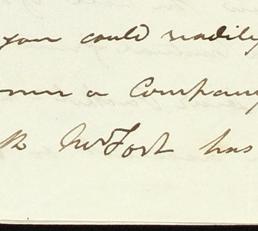 you could readily
a Company
Mr Fort has